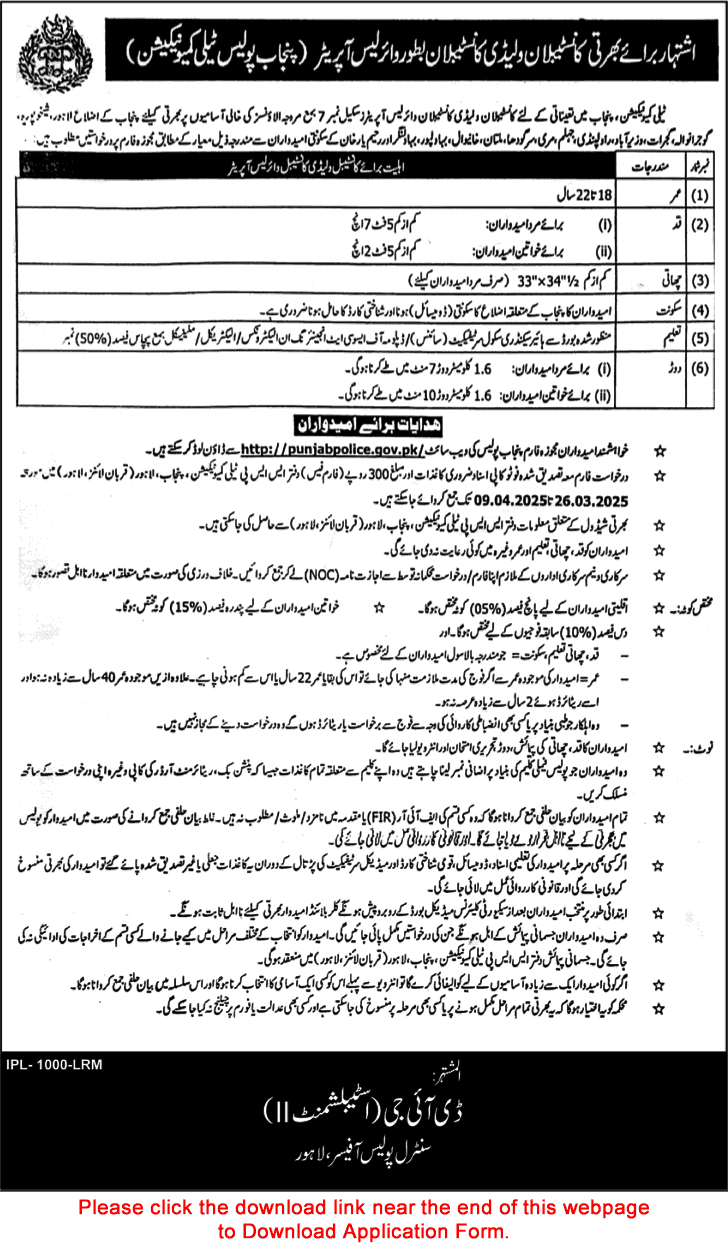 اشتہار برائے بھرتی کانسٹیبلان ولیڈی کانسٹیبلان بطور وائرلیس آپریٹر (پنجاب پولیس ٹیلی کمیونیکیشن)
ٹیلی کمیونیکیشن، پنجاب میں تعیناتی کے لئے کانسٹیبلان ولیڈی کانسٹیبلان وائرلیس آپریٹرز سکیل نمبر 7 بمع مروجہ الاؤنسز کی خالی آسامیوں پر بھرتی کیلئے پنجاب کے اضلاع لاہور، شیخوپورہ،
گوجرانوالہ، گجرات، وزیرآباد، راولپنڈی، جہلم، مری، سرگودھا، ملتان، خانیوال، بہاولپور، بہاولنگر اور رحیم یار خان کے سکونتی امیدواران سے مندرجہ ذیل معیار کے مطابق مجوزہ فارم پر درخواستیں مطلوب ہیں:
نمبر شمار مندرجات اہلیت برائے کانسٹیبل ولیڈی کانسٹیبل وائرلیس آپریٹر
(1) عمر 18 تا 22 سال
(2) قد (i) برائے مرد امیدواران: کم از کم 5 فٹ 7 انچ
(ii) برائے خواتین امیدواران: کم از کم 5 فٹ 2 انچ
(3) چھاتی کم از کم 33"×34½" (صرف مرد امیدواران کیلئے)
(4) سکونت امیدواران کا پنجاب کے متعلقہ اضلاع کا سکونتی (ڈومیسائل) ہونا اور شناختی کارڈ کا حامل ہونا ضروری ہے۔
(5) تعلیم منظور شدہ بورڈ سے ہائیر سیکنڈری سکول سرٹیفکیٹ (سائنس)/ڈپلومہ آف ایسوسی ایٹ انجینئرنگ ان الیکٹرونکس/الیکٹریکل/مکینیکل بمع پچاس فیصد (50%) نمبر
(6) دوڑ (i) برائے مرد امیدواران: 1.6 کلومیٹر دوڑ 7 منٹ میں طے کرنا ہوگی۔
(ii) برائے خواتین امیدواران: 1.6 کلومیٹر دوڑ 10 منٹ میں طے کرنا ہوگی۔
ھدایات برائے امیدواران
☆ خواہشمند امیدواران مجوزہ فارم پنجاب پولیس کی ویب سائٹ http://punjabpolice.gov.pk/ سے ڈاؤن لوڈ کر سکتے ہیں۔
☆ درخواست فارم معہ تصدیق شدہ فوٹو کاپی اسناد ضروری کاغذات اور مبلغ 300 روپے (فارم فیس) دفتر ایس ایس پی ٹیلی کمیونیکیشن، پنجاب، لاہور (قربان لائنز، لاہور) میں مورخہ
26.03.2025 تا 09.04.2025 تک جمع کروائے جا سکتے ہیں۔
☆ بھرتی شیڈول کے متعلق معلومات دفتر ایس ایس پی ٹیلی کمیونیکیشن، پنجاب، لاہور (قربان لائنز، لاہور) سے حاصل کی جاسکتی ہیں۔
☆ امیدواران کو قد، چھاتی، تعلیم اور عمر وغیرہ میں کوئی رعایت نہ دی جائے گی۔
☆ سرکاری و نیم سرکاری اداروں کے ملازم اپنا فارم/درخواست محکمانہ توسط سے اجازت نامہ (NOC) لے کر جمع کروائیں۔ خلاف ورزی کی صورت میں متعلقہ امیدوار نااہل تصور ہوگا۔
مختص کوٹہ:۔ ☆ اقلیتی امیدواران کے لیے پانچ فیصد (05%) کوٹہ مختص ہوگا۔ ☆ خواتین امیدواران کے لیے پندرہ فیصد (15%) کوٹہ مختص ہوگا۔
☆ دس فیصد (10%) سابقہ فوجیوں کے لیے مختص ہوگا۔ اور
– قد، چھاتی، تعلیم، سکونت = جو مندرجہ بالا سول امیدواران کے لئے مخصوص ہے۔
– عمر = امیدوار کی موجودہ عمر سے اگر فوج کی مدت ملازمت منہا کی جائے تو اس کی بقایا عمر 22 سال یا اس سے کم ہونی چاہیے۔ علاوہ ازیں موجودہ عمر 40 سال سے زیادہ نہ ہو اور
اسے ریٹائرڈ ہوئے 2 سال سے زیادہ عرصہ نہ ہو۔
– وہ اہلکار جو طبی بنیاد پر یا کسی بھی انضباطی کاروائی کی وجہ سے فوج سے برخاست یا ریٹائرڈ ہوں گے وہ درخواست دینے کے مجاز نہیں ہیں۔
نوٹ:۔ ☆ امیدواران کا قد، چھاتی کی پیمائش، دوڑ، تحریری امتحان اور انٹرویو لیا جائے گا۔
☆ وہ امیدواران جو پولیس فیملی کلیم کی بنیاد پر اضافی نمبر لینا چاہتے ہیں وہ اپنے کلیم سے متعلق تمام کاغذات جیسا کہ پنشن بک، ریٹائرمنٹ آرڈر کی کاپی وغیرہ اپنی درخواست کے ساتھ
منسلک کریں۔
☆ تمام امیدواران کو بیان حلفی جمع کروانا ہوگا کہ وہ کسی قسم کی ایف آئی آر (FIR) یا مقدمہ میں نامزد/ملوث/مطلوب نہ ہیں۔ غلط بیان حلفی جمع کروانے کی صورت میں امیدوار کو پولیس
میں بھرتی کے لیے نااہل قرار دے دیا جائے گا۔ اور قانونی کارروائی عمل میں لائی جائے گی۔
☆ اگر کسی بھی مرحلہ پر امیدوار کی تعلیمی اسناد، ڈومیسائل، قومی شناختی کارڈ اور میڈیکل سرٹیفکیٹ کی پڑتال کے دوران یہ کاغذات جعلی یا غیر تصدیق شدہ پائے گئے تو امیدوار کی بھرتی منسوخ
کر دی جائے گی اور قانونی کارروائی عمل میں لائی جائے گی۔
☆ ابتدائی طور پر منتخب امیدواران بعد از سیکورٹی کلیئرنس میڈیکل بورڈ کے روبرو پیش ہونگے کلر بلائنڈ امیدوار بھرتی کیلئے نااہل ثابت ہونگے۔
☆ صرف وہ امیدواران جسمانی پیمائش کے اہل ہونگے جن کی درخواستیں مکمل پائی جائیں گی۔ امیدوار کو انتخاب کے مختلف مراحل میں کیے جانے والے کسی قسم کے اخراجات کی ادائیگی نہ کی
جائے گی۔ جسمانی پیمائش دفتر ایس ایس پی ٹیلی کمیونیکیشن، پنجاب، لاہور (قربان لائنز، لاہور) میں منعقد ہوگی۔
☆ اگر کوئی امیدوار ایک سے زیادہ آسامیوں کے لیے کوالیفائی کرے گا تو انٹرویو سے پہلے اس کو کسی ایک آسامی کا انتخاب کرنا ہوگا اور اس سلسلہ میں بیان حلفی جمع کروانا ہوگا۔
☆ محکمہ کو یہ اختیار ہوگا کہ یہ بھرتی تمام مراحل مکمل ہونے پر یا کسی بھی مرحلہ پر منسوخ کی جاسکتی ہے اور کسی بھی عدالت یا فورم پر چیلنج نہ کیا جاسکے گی۔
IPL- 1000-LRM
المشتہر:
ڈی آئی جی (اسٹیبلشمنٹ II)
سنٹرل پولیس آفیسر، لاہور
Please click the download link near the end of this webpage
to Download Application Form.